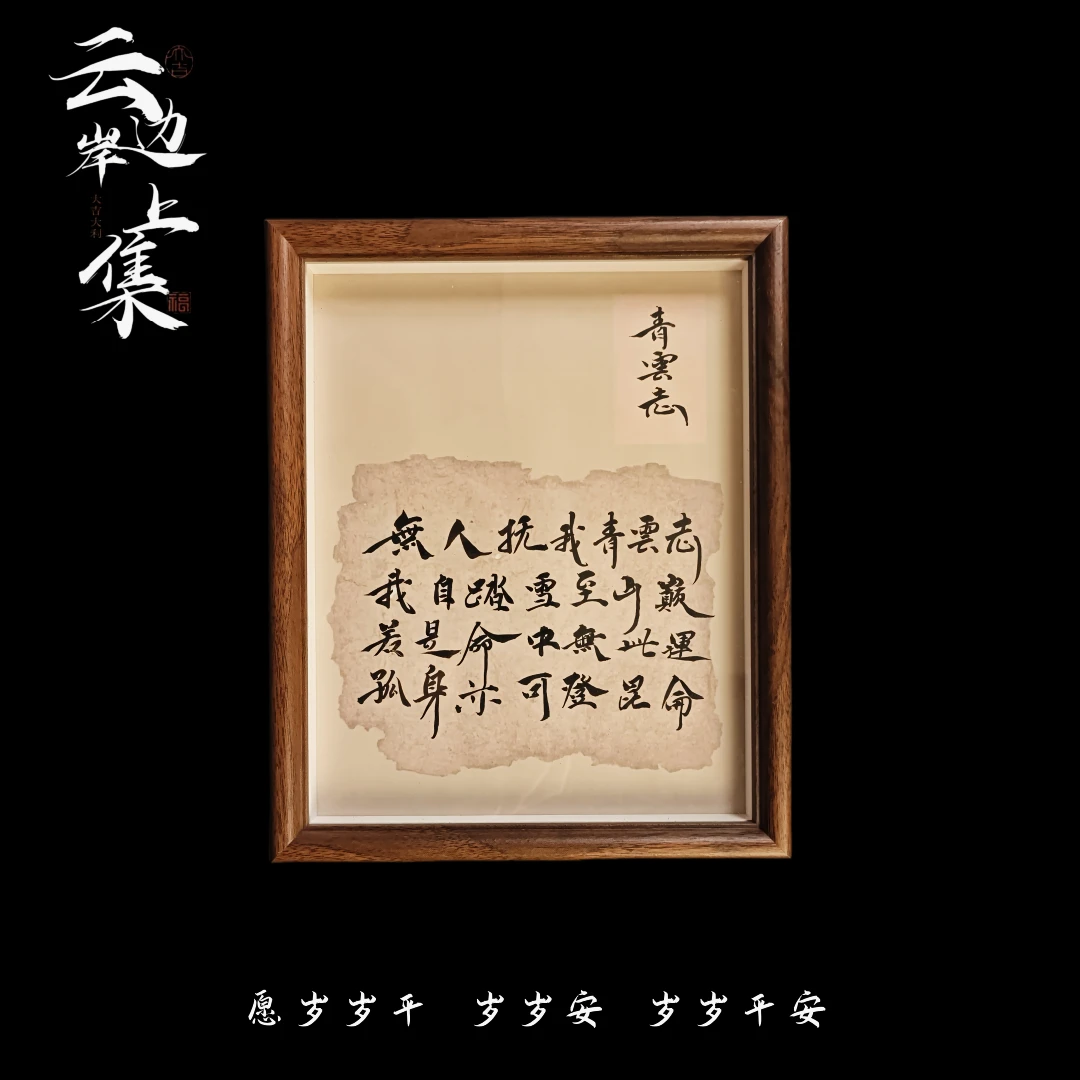 云边
岸上
集
大吉大利
福
青雲志
無人抚我青雲志
我自踏雪至山巅
若是命中無此運
孤身亦可登昆侖
愿岁岁平 岁岁安 岁岁平安